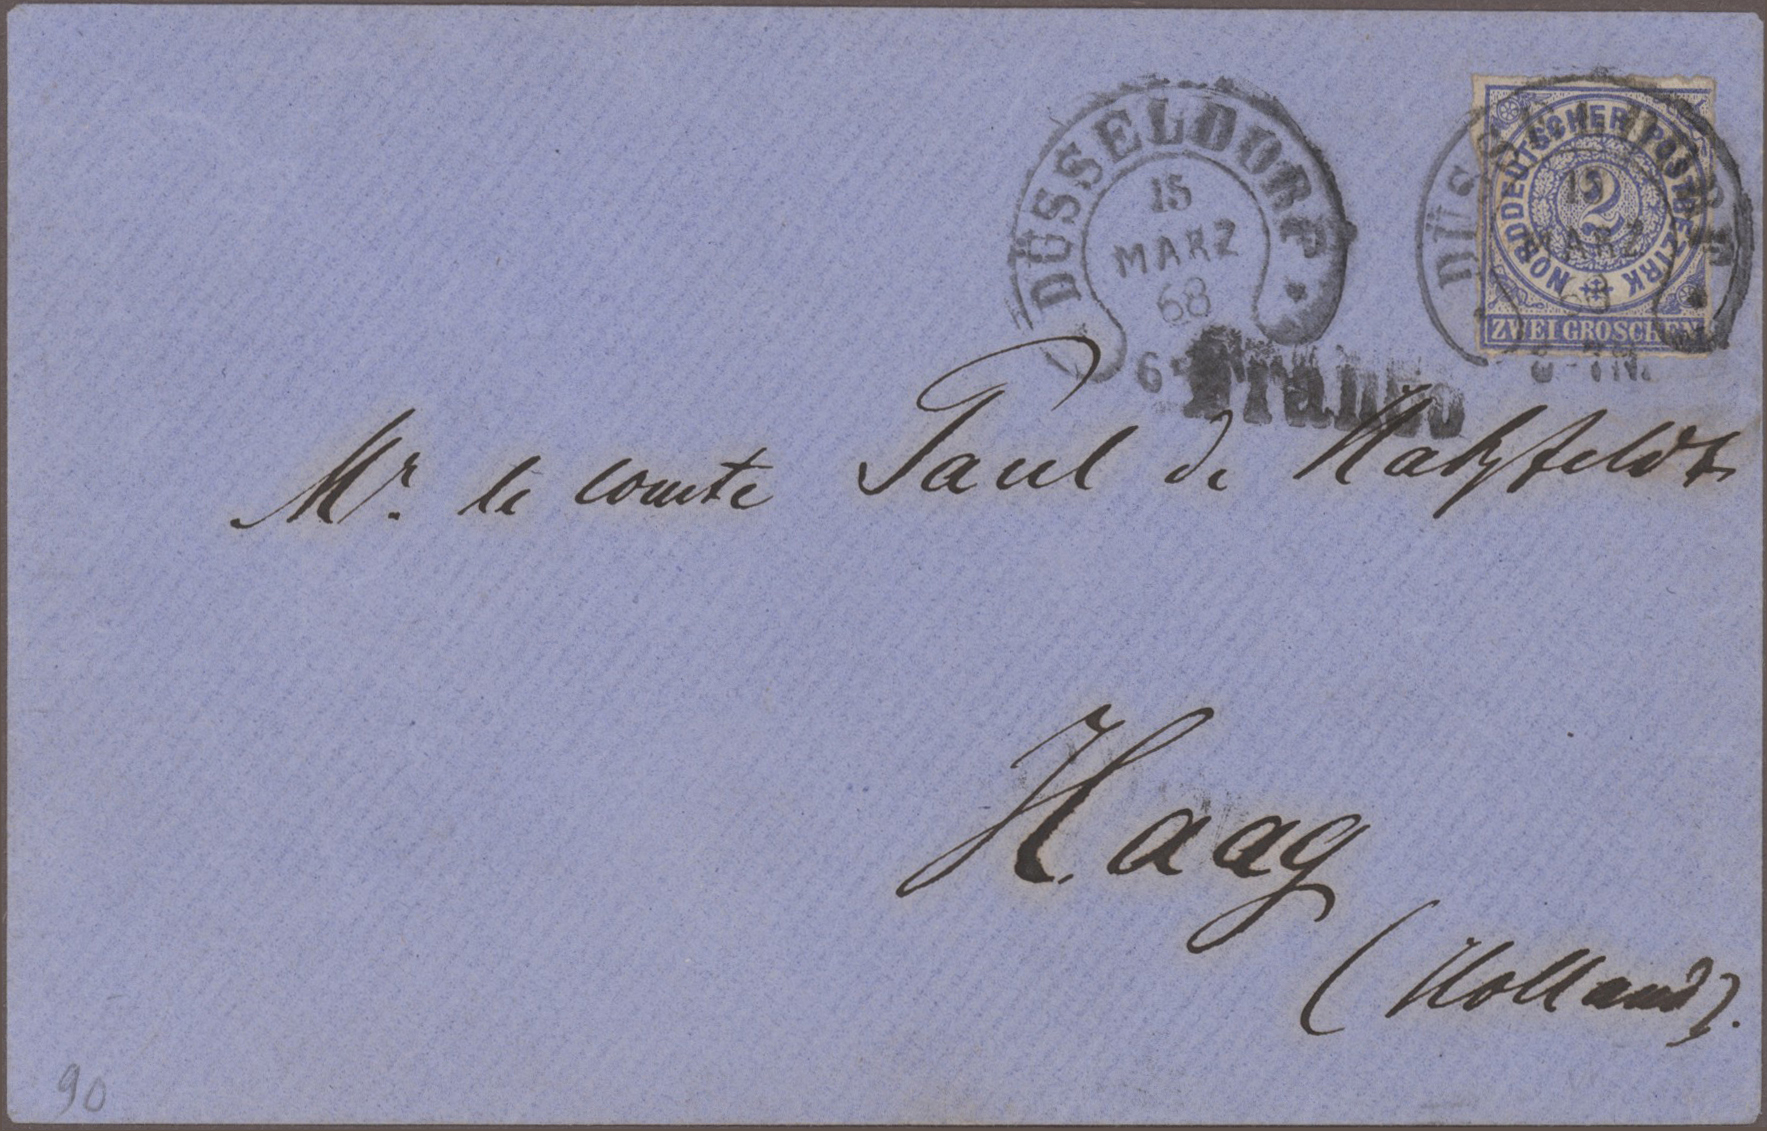 DÜSSELDORF
15
MARZ
68
NORDDEUTSCHER POSTBEZIRK
2
ZWEI GROSCHEN
DÜSSELDORF
15
MARZ
68
Franco
Mr. le comte Paul de Hatzfeldt
Haag
(Holland).
90